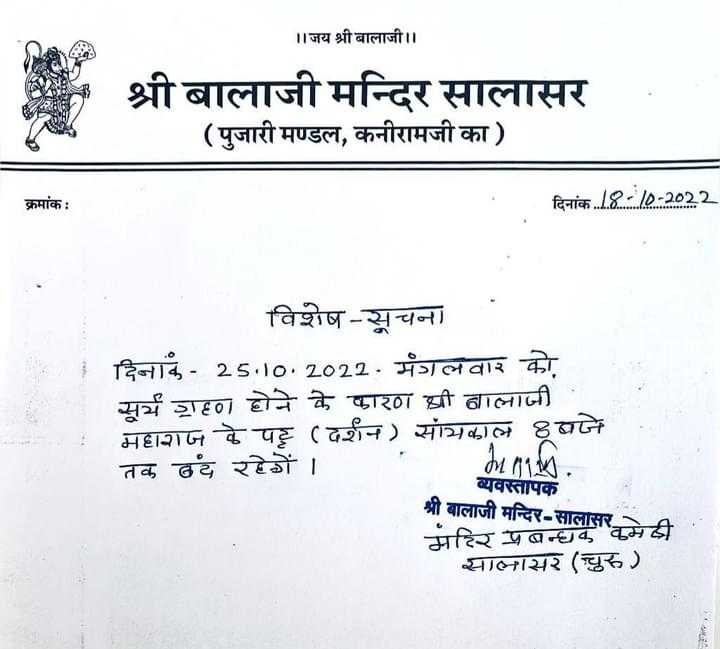 ।।जय श्री बालाजी।।
श्री बालाजी मन्दिर सालासर
( पुजारी मण्डल, कनीरामजी का )
क्रमांक :
दिनांक 18-10-2022
विशेष-सूचना
दिनांक - 25.10.2022. मंगलवार को
सूर्य ग्रहण होने के कारण श्री बालाजी
महाराज के पट्ट (दर्शन) सांयकाल 8 बजे
तक बंद रहेगें ।
व्यवस्तापक
श्री बालाजी मन्दिर-सालासर
मंदिर प्रबन्धक कमेटी
सालासर (चुरू)